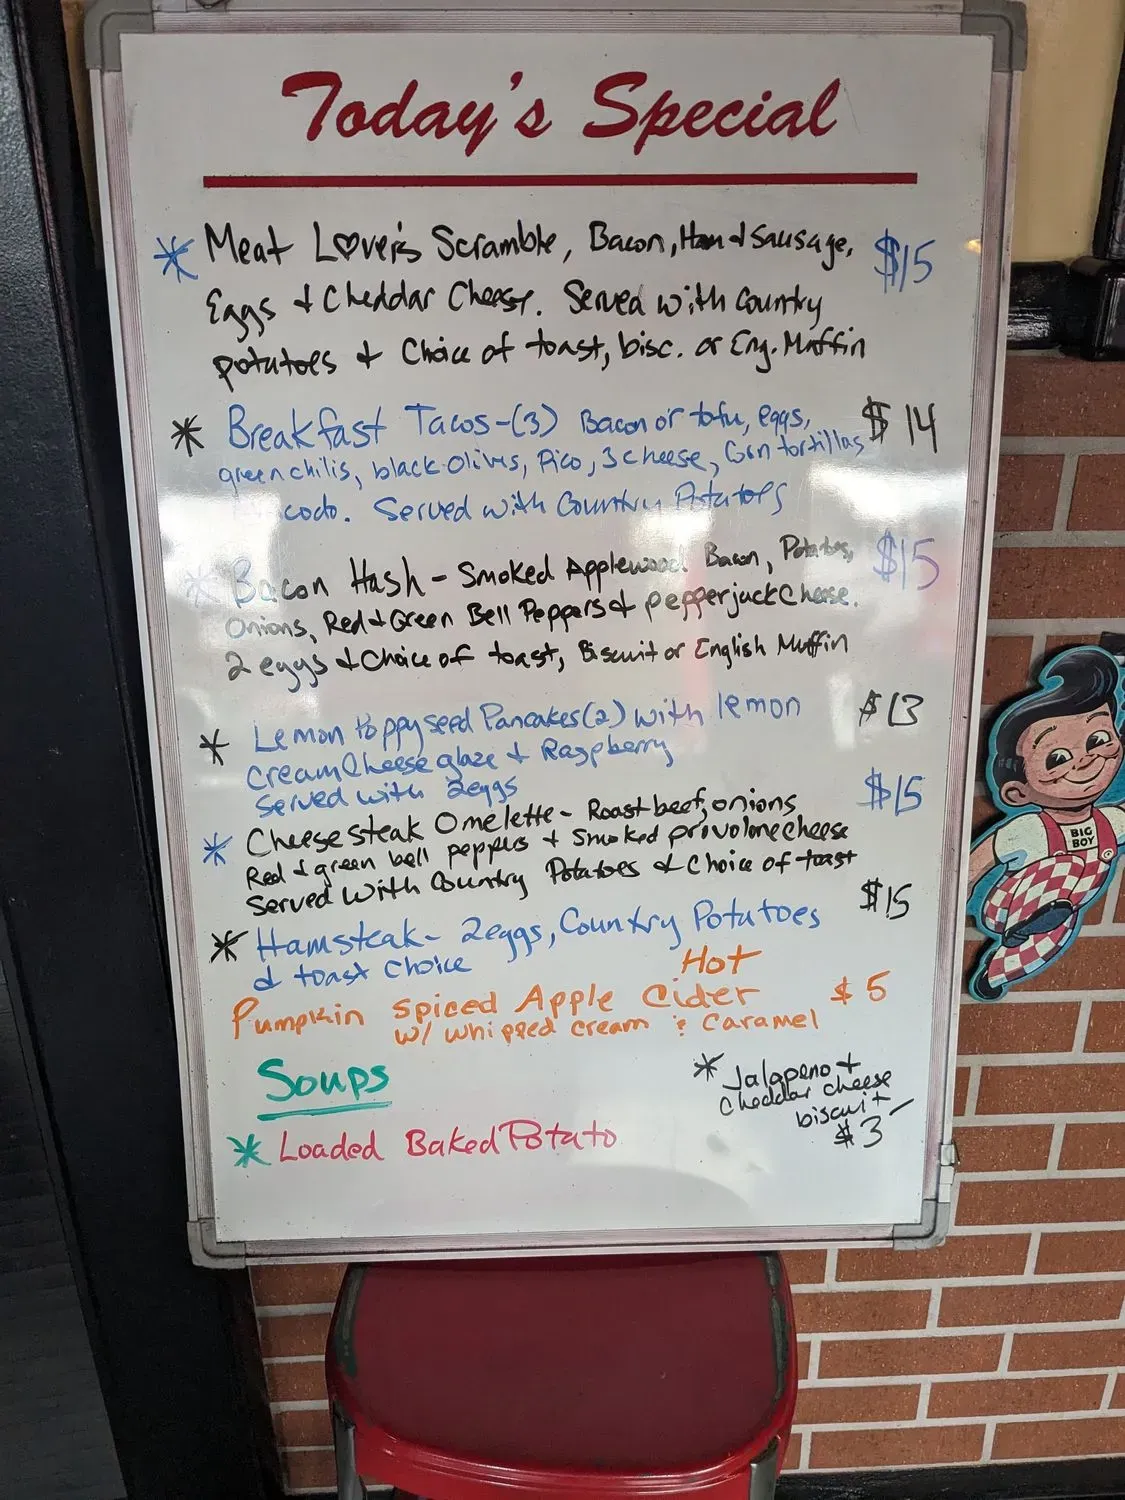 Today's Special
* Meat Lover's Scramble, Bacon, Ham & Sausage, $15
Eggs & Cheddar Cheese. Served with Country
potatoes & Choice of toast, bisc. or Eng. Muffin
* Breakfast Tacos-(3) Bacon or tofu, eggs, $14
green chilis, black olives, Pico, 3 cheese, Corn tortillas
Served with Country Potatoes
* Bacon Hash - Smoked Applewood Bacon, Potatoes, $15
Onions, Red & Green Bell Peppers & pepperjack Cheese.
2 eggs & Choice of toast, Biscuit or English Muffin
* Lemon Poppyseed Pancakes (2) with lemon $13
cream Cheese glaze & Raspberry
Served with 2 eggs
* Cheesesteak Omelette - Roast beef, onions $15
Red & green bell peppers & Smoked provolone cheese
Served with Country Potatoes & Choice of toast
* Hamsteak - 2 eggs, Country Potatoes $15
& toast choice
Hot
Pumpkin Spiced Apple Cider $5
w/ whipped cream & Caramel
Soups
* Loaded Baked Potato
* Jalapeno &
Cheddar cheese
biscuit
$3
BIG
BOY